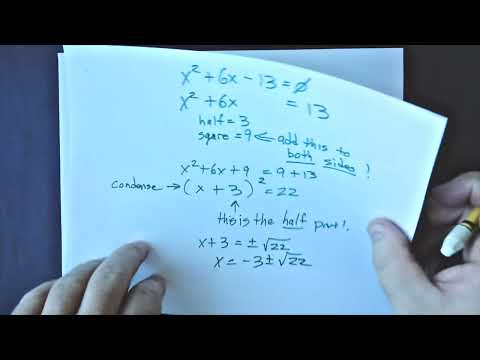 x² + 6x - 13 = 0
x² + 6x = 13
half = 3
square = 9 ← add this to both sides!
x² + 6x + 9 = 9 + 13
condense → (x + 3)² = 22
↑
this is the half part!
x + 3 = ± √22
x = -3 ± √22